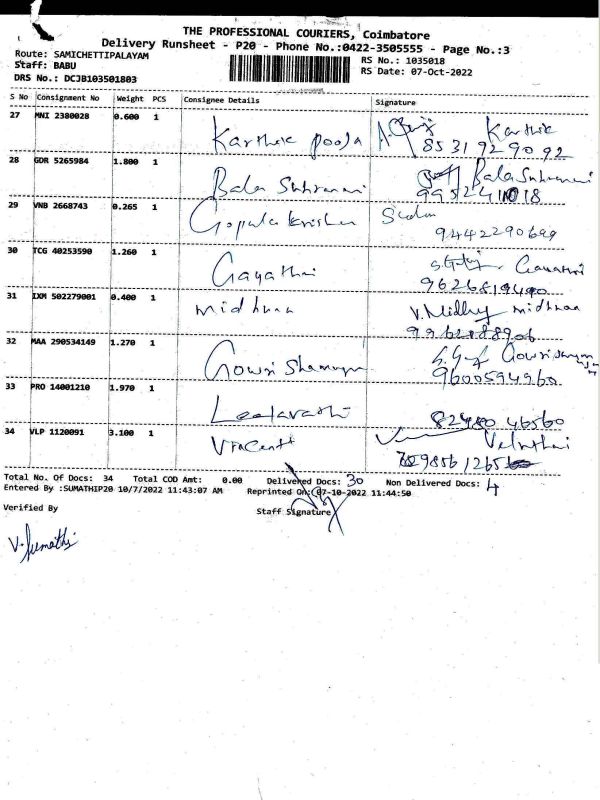 THE PROFESSIONAL COURIERS, Coimbatore
Delivery Runsheet - P20 - Phone No.:0422-3505555 - Page No.:3
Route: SAMICHETTIPALAYAM
RS No.: 1035018
Staff: BABU
RS Date: 07-Oct-2022
DRS No.: DCJB103501803
S No Consignment No Weight PCS Consignee Details Signature
27 MNI 2380028 0.600 1 Karthik Pooja Karthik
8531929092
28 GDR 5265984 1.800 1 Bala Subramani Bala Subramani
29 VNB 2668743 0.265 1 Gopala Krishna
9442290699
30 TCG 40253590 1.260 1 Gayathri Gayathri
31 IXM 502279001 0.400 1 midhuna V. Midhu midhuna
32 MAA 290534149 1.270 1 Gowri Shanmugam
9600594960
33 PRO 14001210 1.970 1 Leelavathi 82480 46560
34 VLP 1120091 3.100 1 Vincent
Total No. Of Docs: 34 Total COD Amt: 0.00 Delivered Docs: 30 Non Delivered Docs: 4
Entered By :SUMATHIP20 10/7/2022 11:43:07 AM Reprinted On:(07-10-2022 11:44:50
Verified By Staff Signature
V. Sumathi